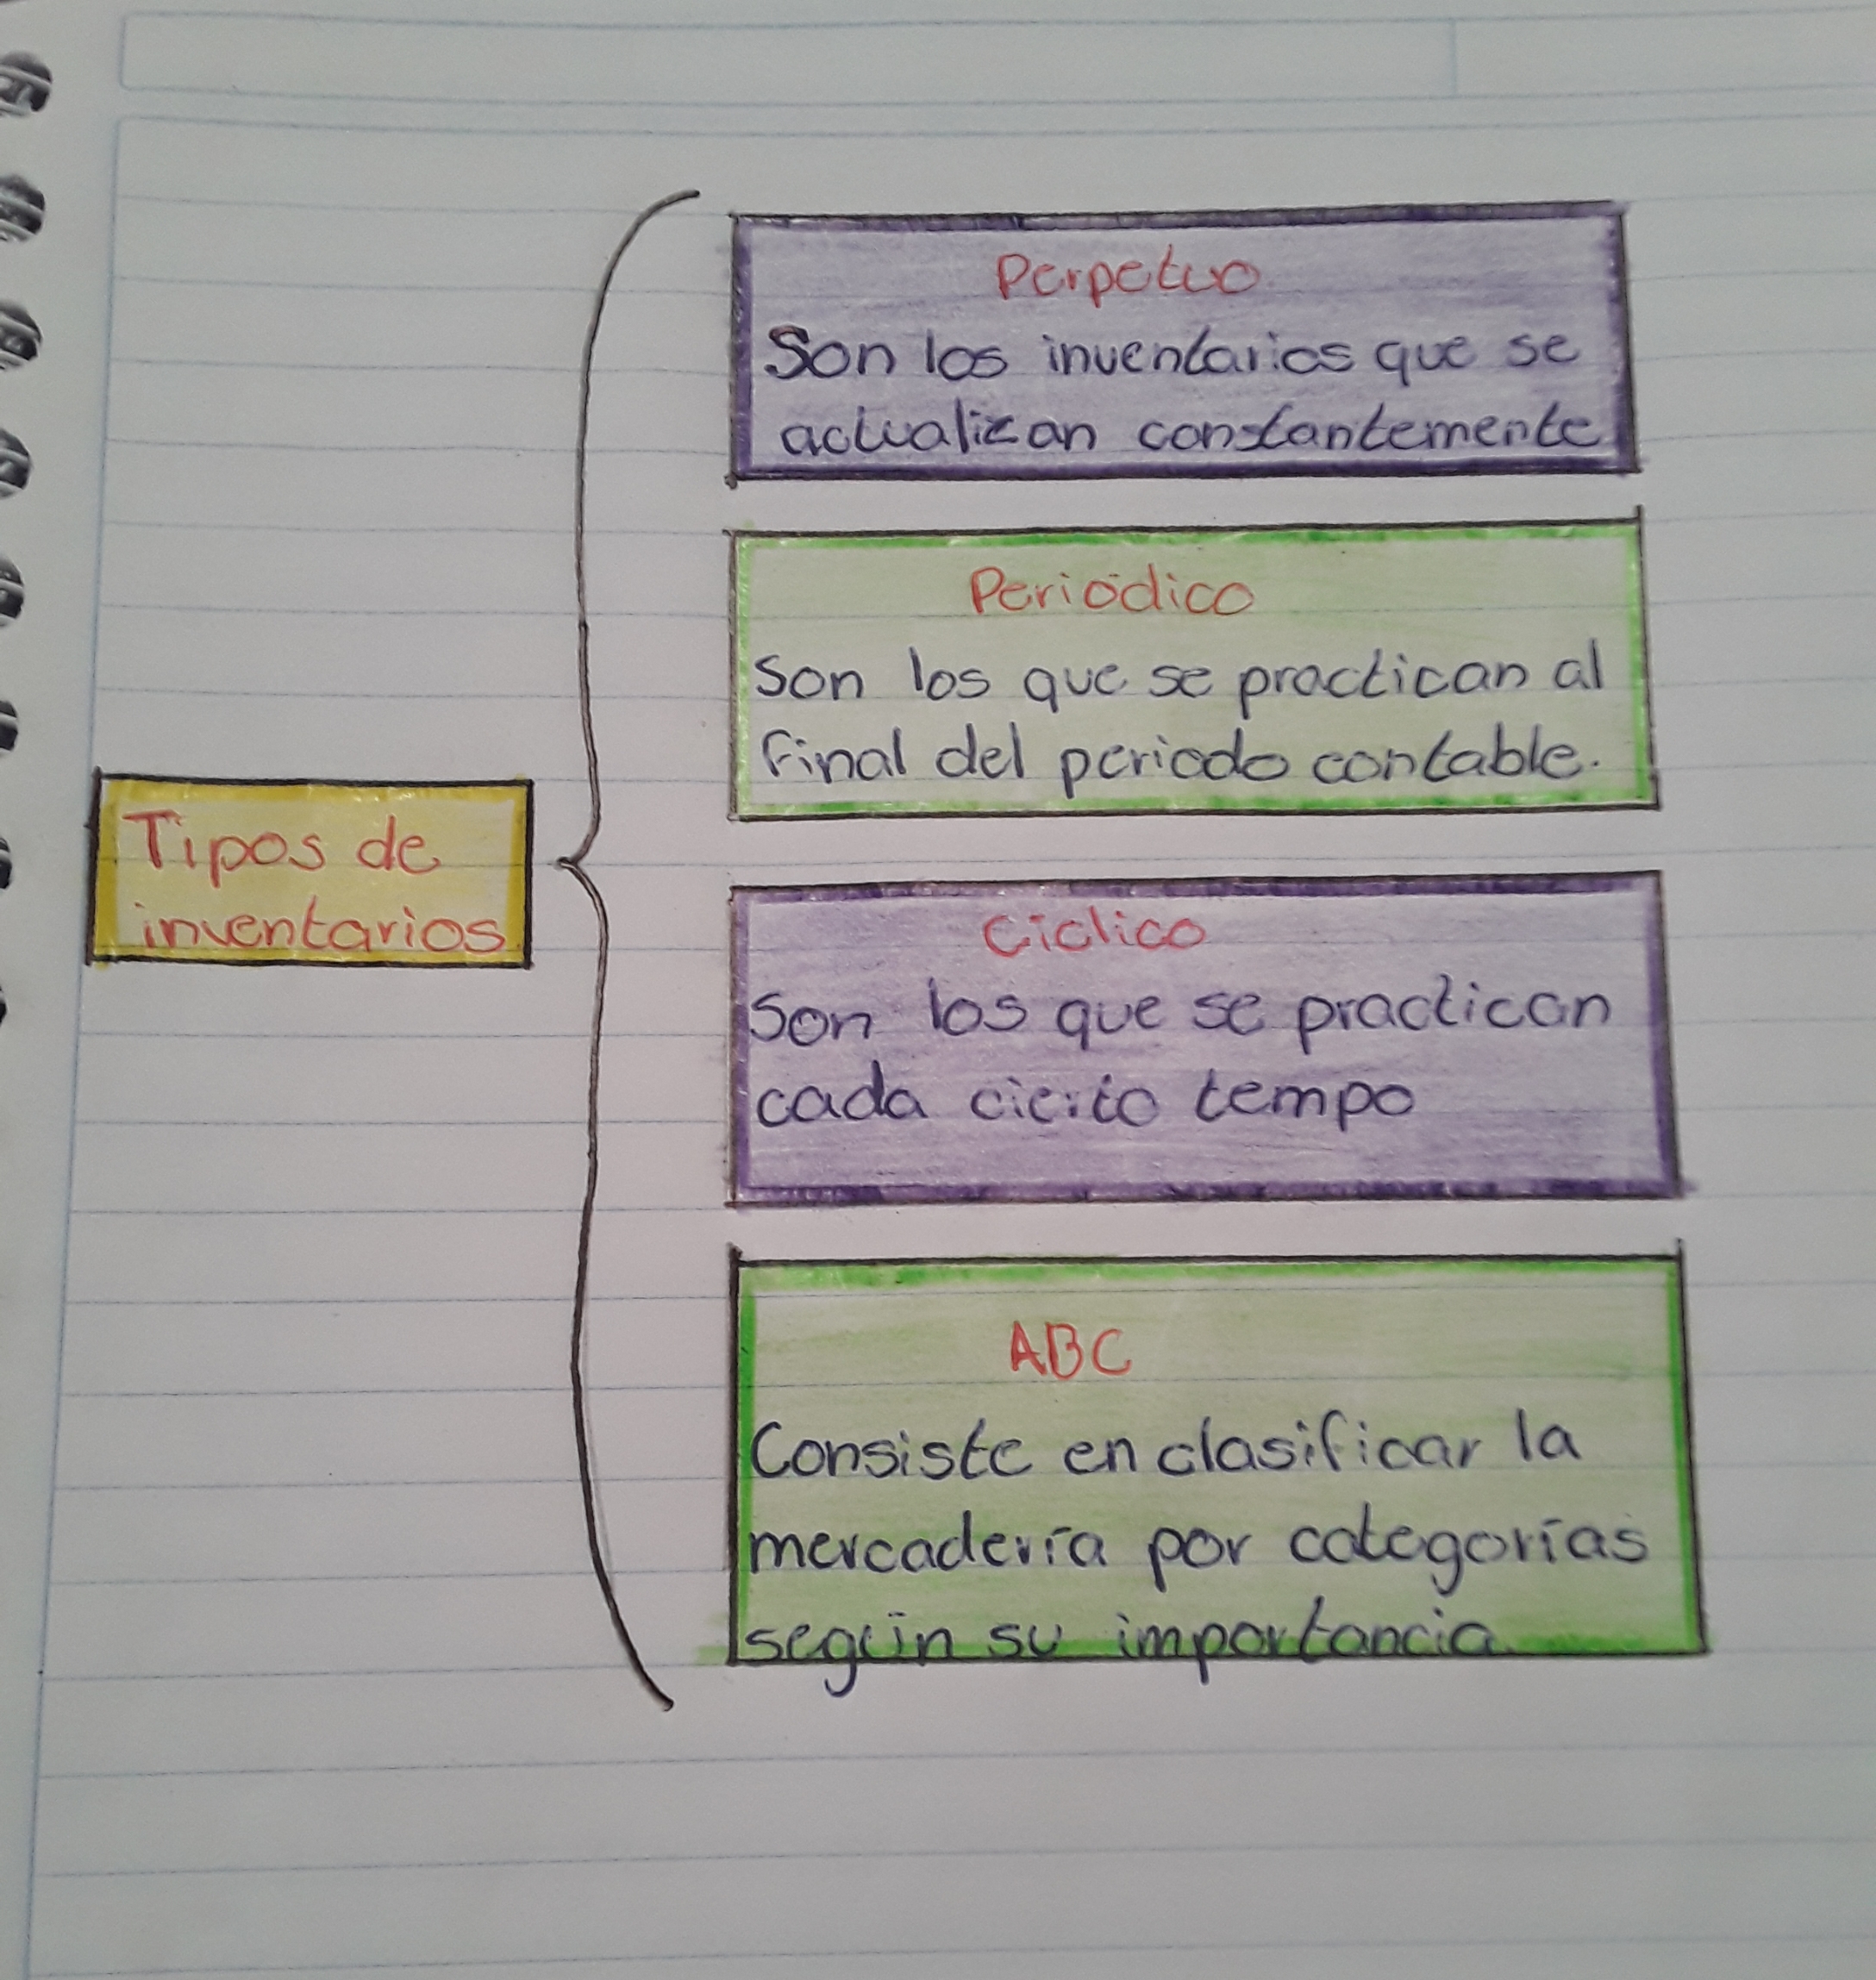 Tipos de
inventarios
Perpetuo
Son los inventarios que se
actualizan constantemente
Periódico
Son los que se practican al
final del periodo contable.
Cíclico
Son los que se practican
cada cierto tempo
ABC
Consiste en clasificar la
mercadería por categorías
según su importancia